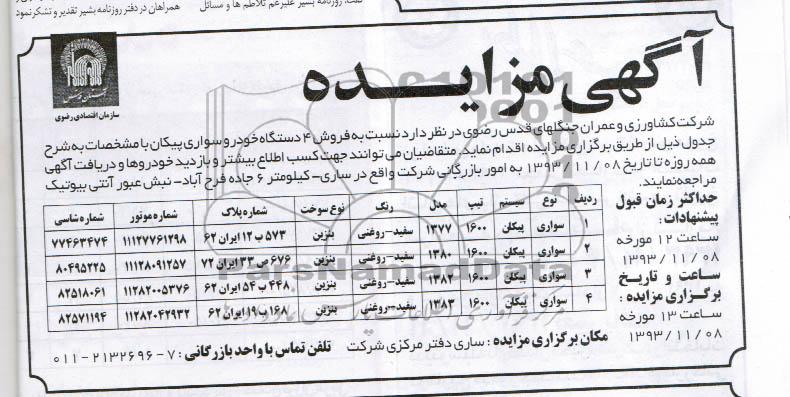 همراهان در دفتر روزنامه بشیر تقدیر و تشکر نمود
گفت: روزنامه بشیر علیرغم تلاطم ها و مسائل
آگهی مزایده
سازمان اقتصادی رضوی
شرکت کشاورزی و عمران جنگلهای قدس رضوی در نظر دارد نسبت به فروش ۴ دستگاه خودرو سواری پیکان با مشخصات به شرح
جدول ذیل از طریق برگزاری مزایده اقدام نماید. متقاضیان می توانند جهت کسب اطلاع بیشتر و بازدید خودروها و دریافت آگهی
همه روزه تا تاریخ ۱۳۹۳/۱۱/۰۸ به امور بازرگانی شرکت واقع در ساری- کیلومتر ۶ جاده فرح آباد- نبش عبور آنتی بیوتیک
مراجعه نمایند.
حداکثر زمان قبول
پیشنهادات:
ساعت ۱۲ مورخه
۱۳۹۳/۱۱/۰۸
ساعت و تاریخ
برگزاری مزایده :
ساعت ۱۳ مورخه
۱۳۹۳/۱۱/۰۸
ردیف نوع سیستم تیپ مدل رنگ نوع سوخت شماره پلاک شماره موتور شماره شاسی
۱ سواری پیکان ۱۶۰۰ ۱۳۷۷ سفید-روغنی بنزین ۵۷۳ ب ۱۲ ایران ۶۲ ۱۱۱۲۷۷۶۱۲۹۸ ۷۷۴۶۳۴۷۴
۲ سواری پیکان ۱۶۰۰ ۱۳۸۰ سفید-روغنی بنزین ۶۷۶ ص ۳۳ ایران ۷۲ ۱۱۱۲۸۰۹۱۲۵۷ ۸۰۴۹۵۲۲۵
۳ سواری پیکان ۱۶۰۰ ۱۳۸۲ سفید-روغنی بنزین ۴۴۸ ب ۵۴ ایران ۶۲ ۱۱۲۸۲۰۰۵۳۷۶ ۸۲۵۱۸۰۶۱
۴ سواری پیکان ۱۶۰۰ ۱۳۸۳ سفید-روغنی بنزین ۱۶۸ ب ۱۹ ایران ۶۲ ۱۱۲۸۲۰۴۲۹۳۲ ۸۲۵۷۱۱۹۴
مکان برگزاری مزایده : ساری دفتر مرکزی شرکت تلفن تماس با واحد بازرگانی : ۷-۲۱۳۲۶۹۶-۰۱۱
ParsNamadData